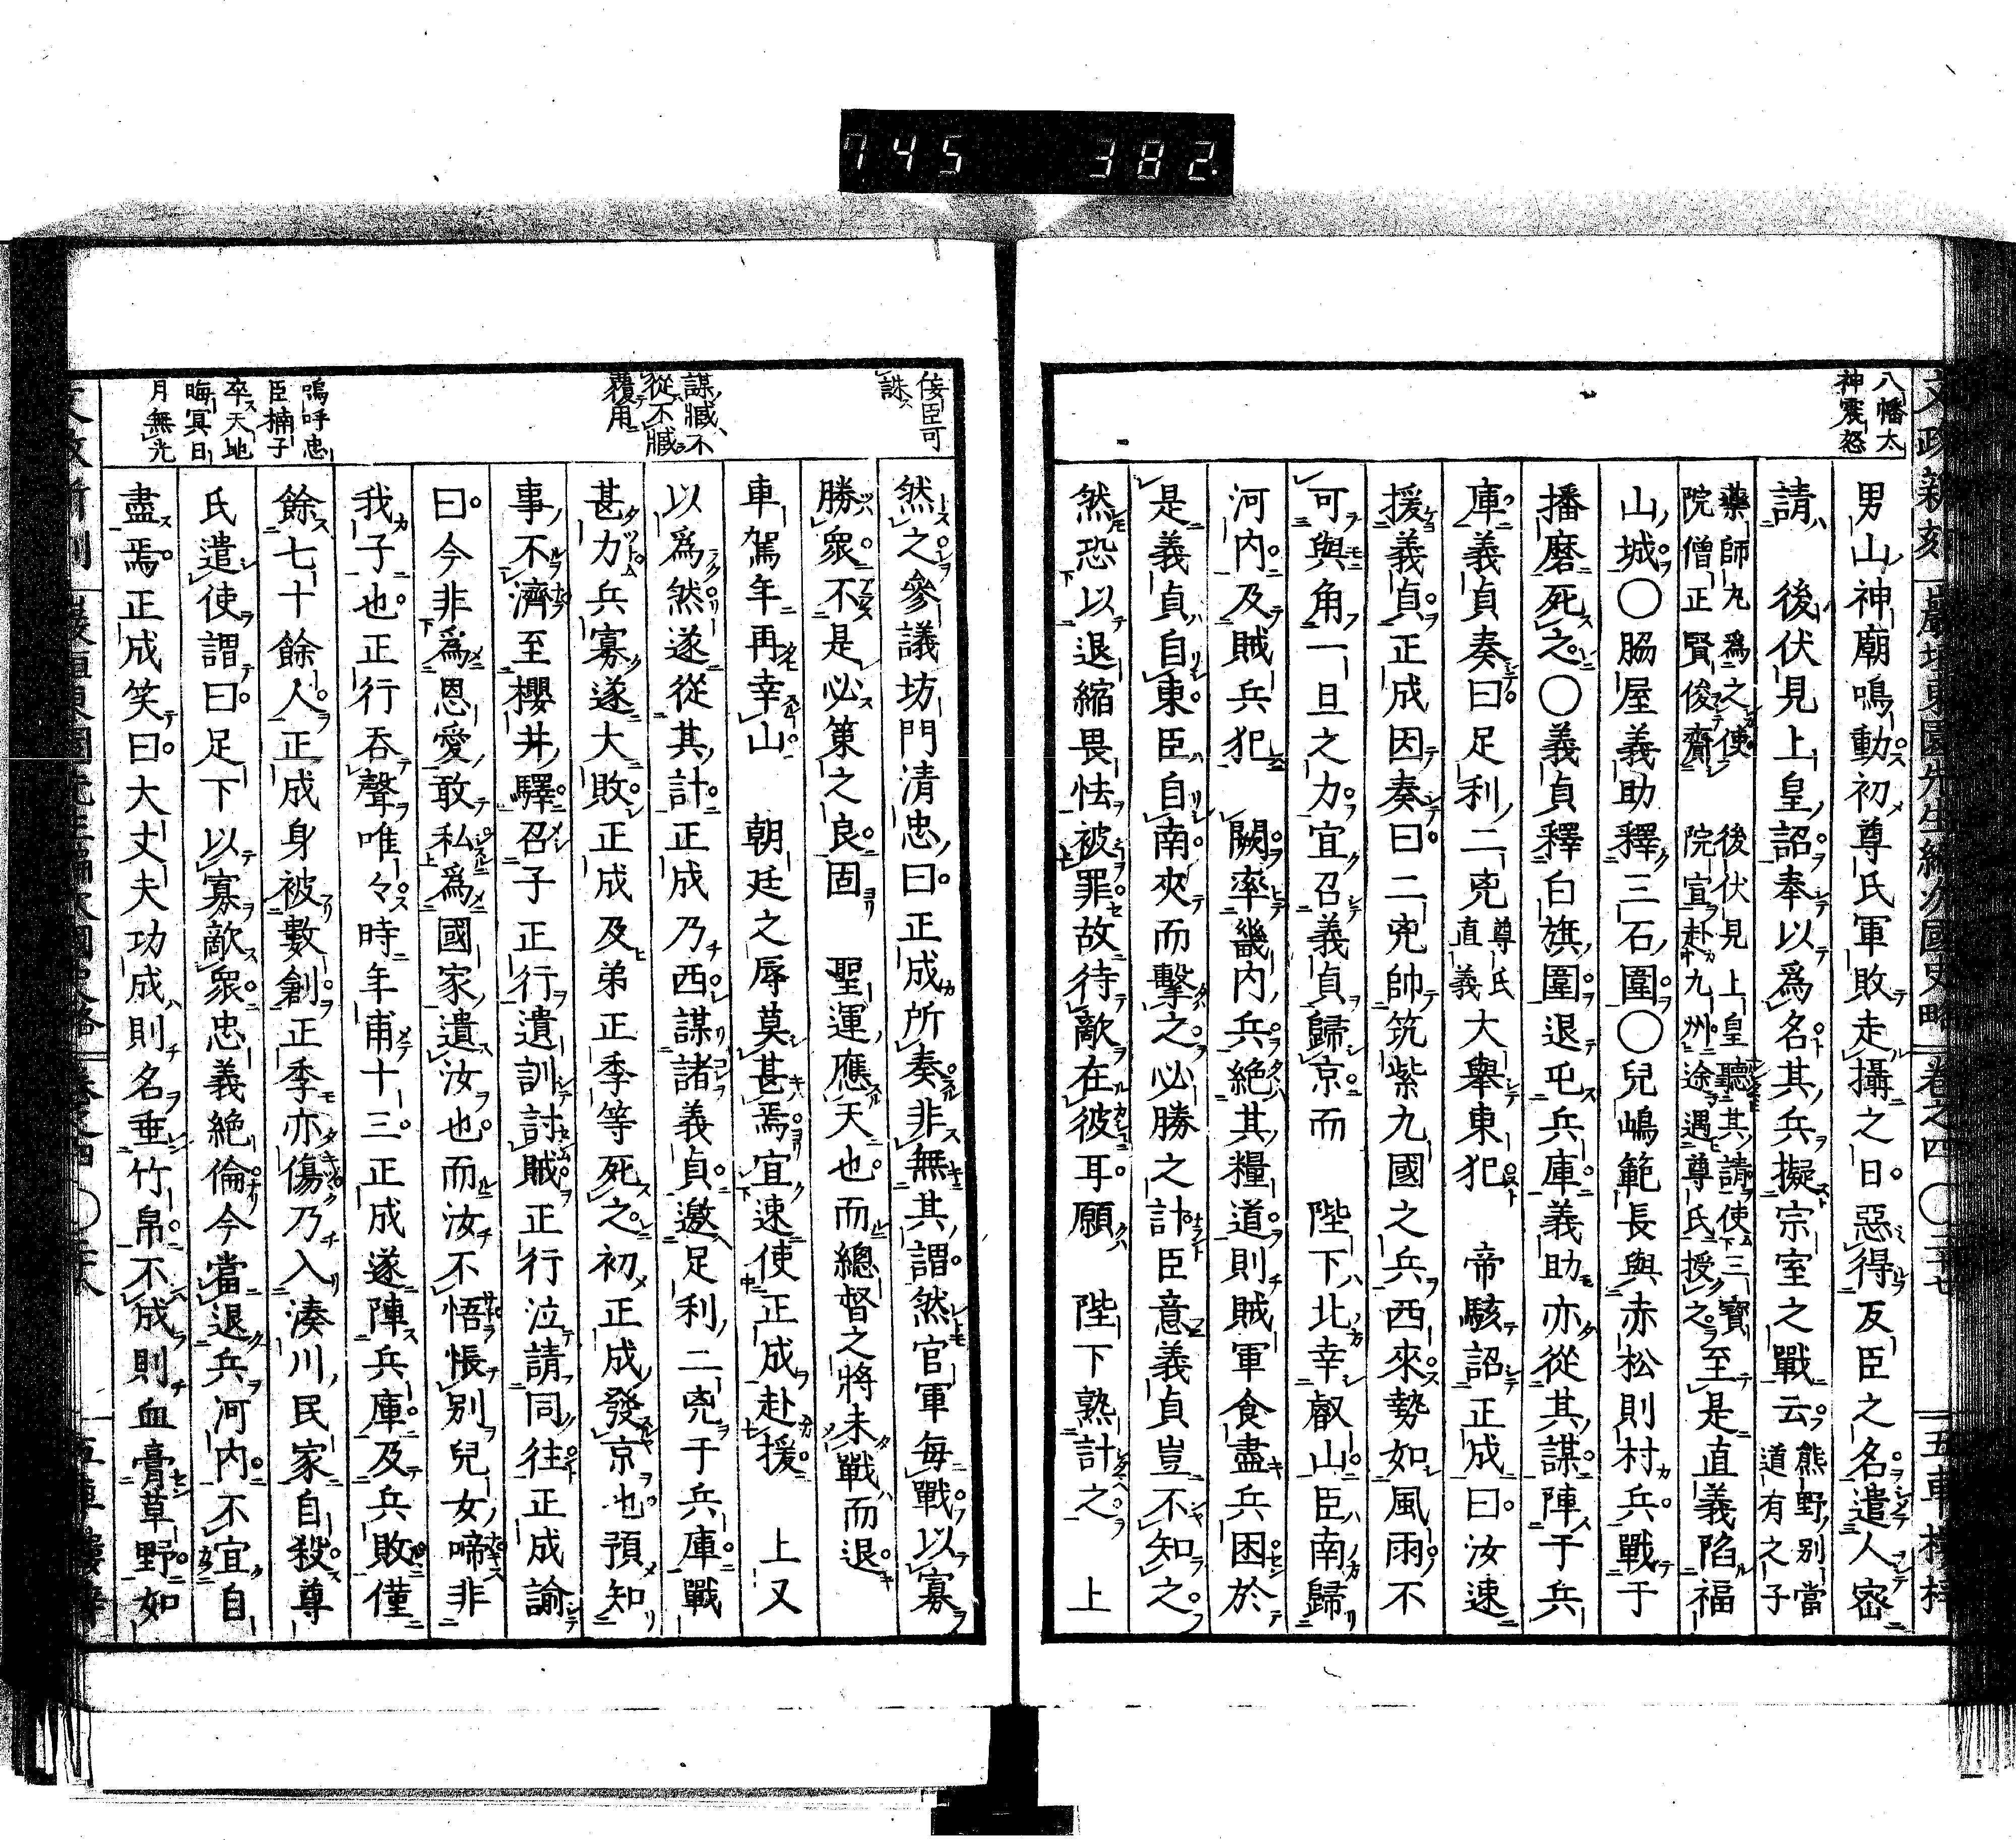 745 382.
八幡太
神震怒
男山神廟鳴動初尊氏軍敗走攝之日惡得反臣之名遣人密
請 後伏見上皇詔奉以爲名其兵擬宗室之戰云熊野別當道有之子
藥師丸爲之使 後伏見上皇聽其請使三寶
院僧正賢俊齎 院宣赴九州途遇尊氏授之至是直義陷福
山城〇脇屋義助釋三石圍〇兒嶋範長與赤松則村兵戰于
播磨死之〇義貞釋白旗圍退屯兵庫義助亦從其謀陣于兵
庫義貞奏曰足利二兇尊氏直義大舉東犯 帝駭詔正成曰汝速
援義貞正成因奏曰二兇帥筑紫九國之兵西來勢如風雨不
可與角一旦之力宜召義貞歸京而 陛下北幸叡山臣南歸
河内及賊兵犯 闕率畿内兵絶其糧道則賊軍食盡兵困於
是義貞自東臣自南夾而擊之必勝之計臣意義貞豈不知之
然恐以退縮畏怯被罪故待敵在彼耳願 陛下熟計之 上
文政新刻 巖垣東園先生編次國史略 卷之四 〇二十七 五車樓梓
佞臣可
誅
謀臧不
從不臧
覆用
嗚呼忠
臣楠子
卒天地
晦冥日
月無光
然之參議坊門清忠曰正成所奏非無其謂然官軍毎戰以寡
勝衆不是必策之良固 聖運應天也而總督之將未戰而退
車駕年再幸山 朝廷之辱莫甚焉宜速使正成赴援 上又
以爲然遂從其計正成乃西謀諸義貞邀足利二兇于兵庫戰
甚力兵寡遂大敗正成及弟正季等死之初正成發京也預知
事不濟至櫻井驛召子正行遺訓討賊正行泣請同往正成諭
曰今非爲恩愛敢私爲國家遺汝也而汝不悟悵別兒女啼非
我子也正行吞聲唯々時年甫十三正成遂陣兵庫及兵敗僅
餘七十餘人正成身被數創正季亦傷乃入湊川民家自殺尊
氏遣使謂曰足下以寡敵衆忠義絶倫今當退兵河内不宜自
盡焉正成笑曰大丈夫功成則名垂竹帛不成則血膏草野如